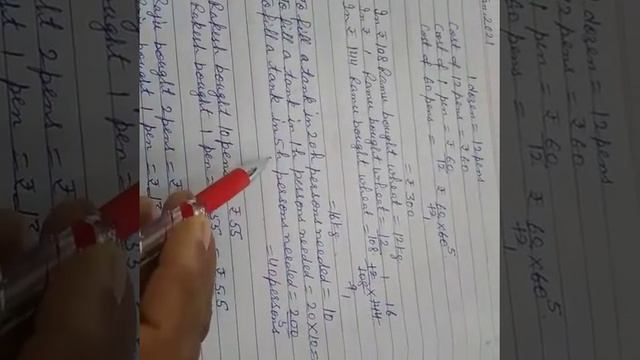 2021
1 dozen = 12 pens
Cost of 12 pens = ₹ 60
Cost of 1 pen = ₹ 60/12
Cost of 60 pens = ₹ 60/12 × 60
= ₹ 300
In ₹ 108 Ramu bought wheat = 12 kg
In ₹ 1 Ramu bought wheat = 12/108
In ₹ 144 Ramu bought wheat = 12/108 × 144
= 16 kg
To fill a tank in 20h persons needed = 10
To fill a tank in 1h persons needed = 20×10=
To fill a tank in 5h persons needed = 200/5
= 40 persons
Rakesh bought 10 pen ₹ 55
Rakesh bought 1 pen = 55 = ₹ 5.5
Raju bought 2 pens = ₹
bought 1 pen = ₹